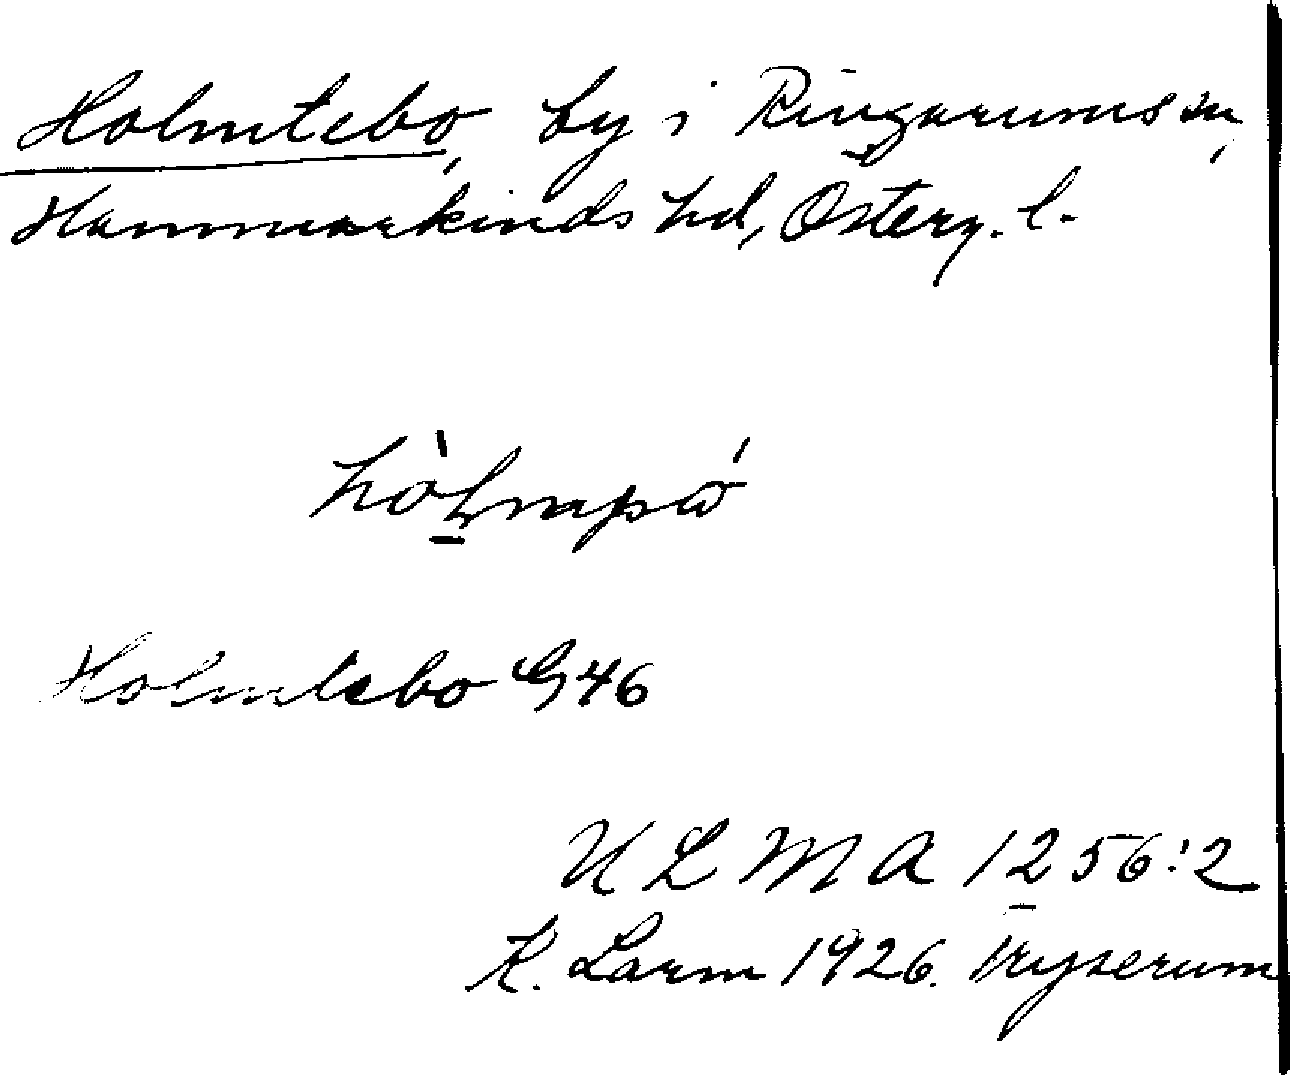 Holmtebo, by i Ringarums sn,
Hammarkinds hd, Österg. l.
Holmtebo G46
ULMA 1256:2
K. Larm 1926. Tryserum